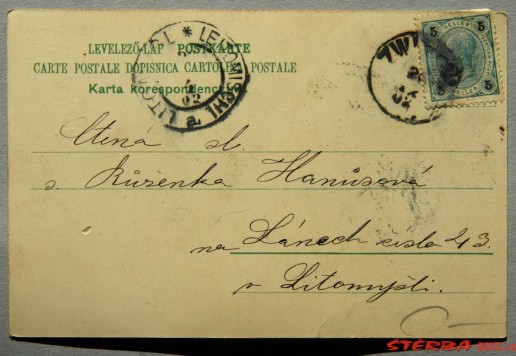 LEVELEZŐ-LAP POSTKARTE
CARTE POSTALE DOPISNICA CARTOLINA POSTALE
Karta korespondencyjna
LEITOMISCHL * LITOMYŠL
a
02
ZWI
02
5 5
HELLER HELLER
5 5
Ctěná sl.
s. Růženka Hanusová
na Lánech číslo 43.
v Litomyšli.
ŠTĚRBA